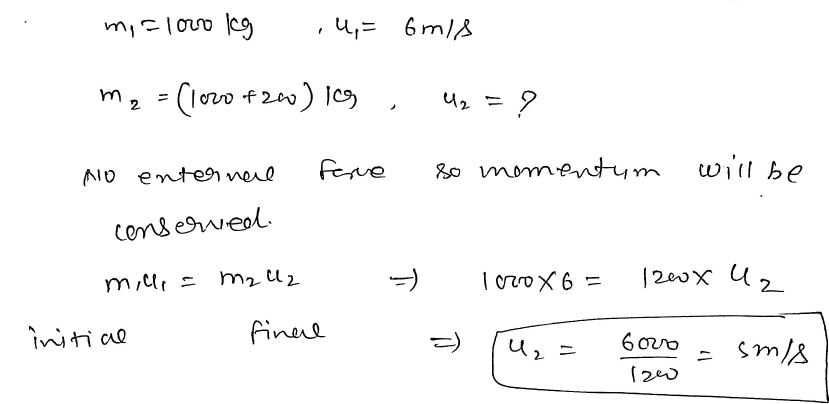 m₁ = 1000 kg , u₁ = 6 m/s
m₂ = (1000 + 200) kg , u₂ = ?
No external force so momentum will be
conserved.
m₁u₁ = m₂u₂ ⇒ 1000 × 6 = 1200 × u₂
initial final ⇒ u₂ = 6000/1200 = 5 m/s